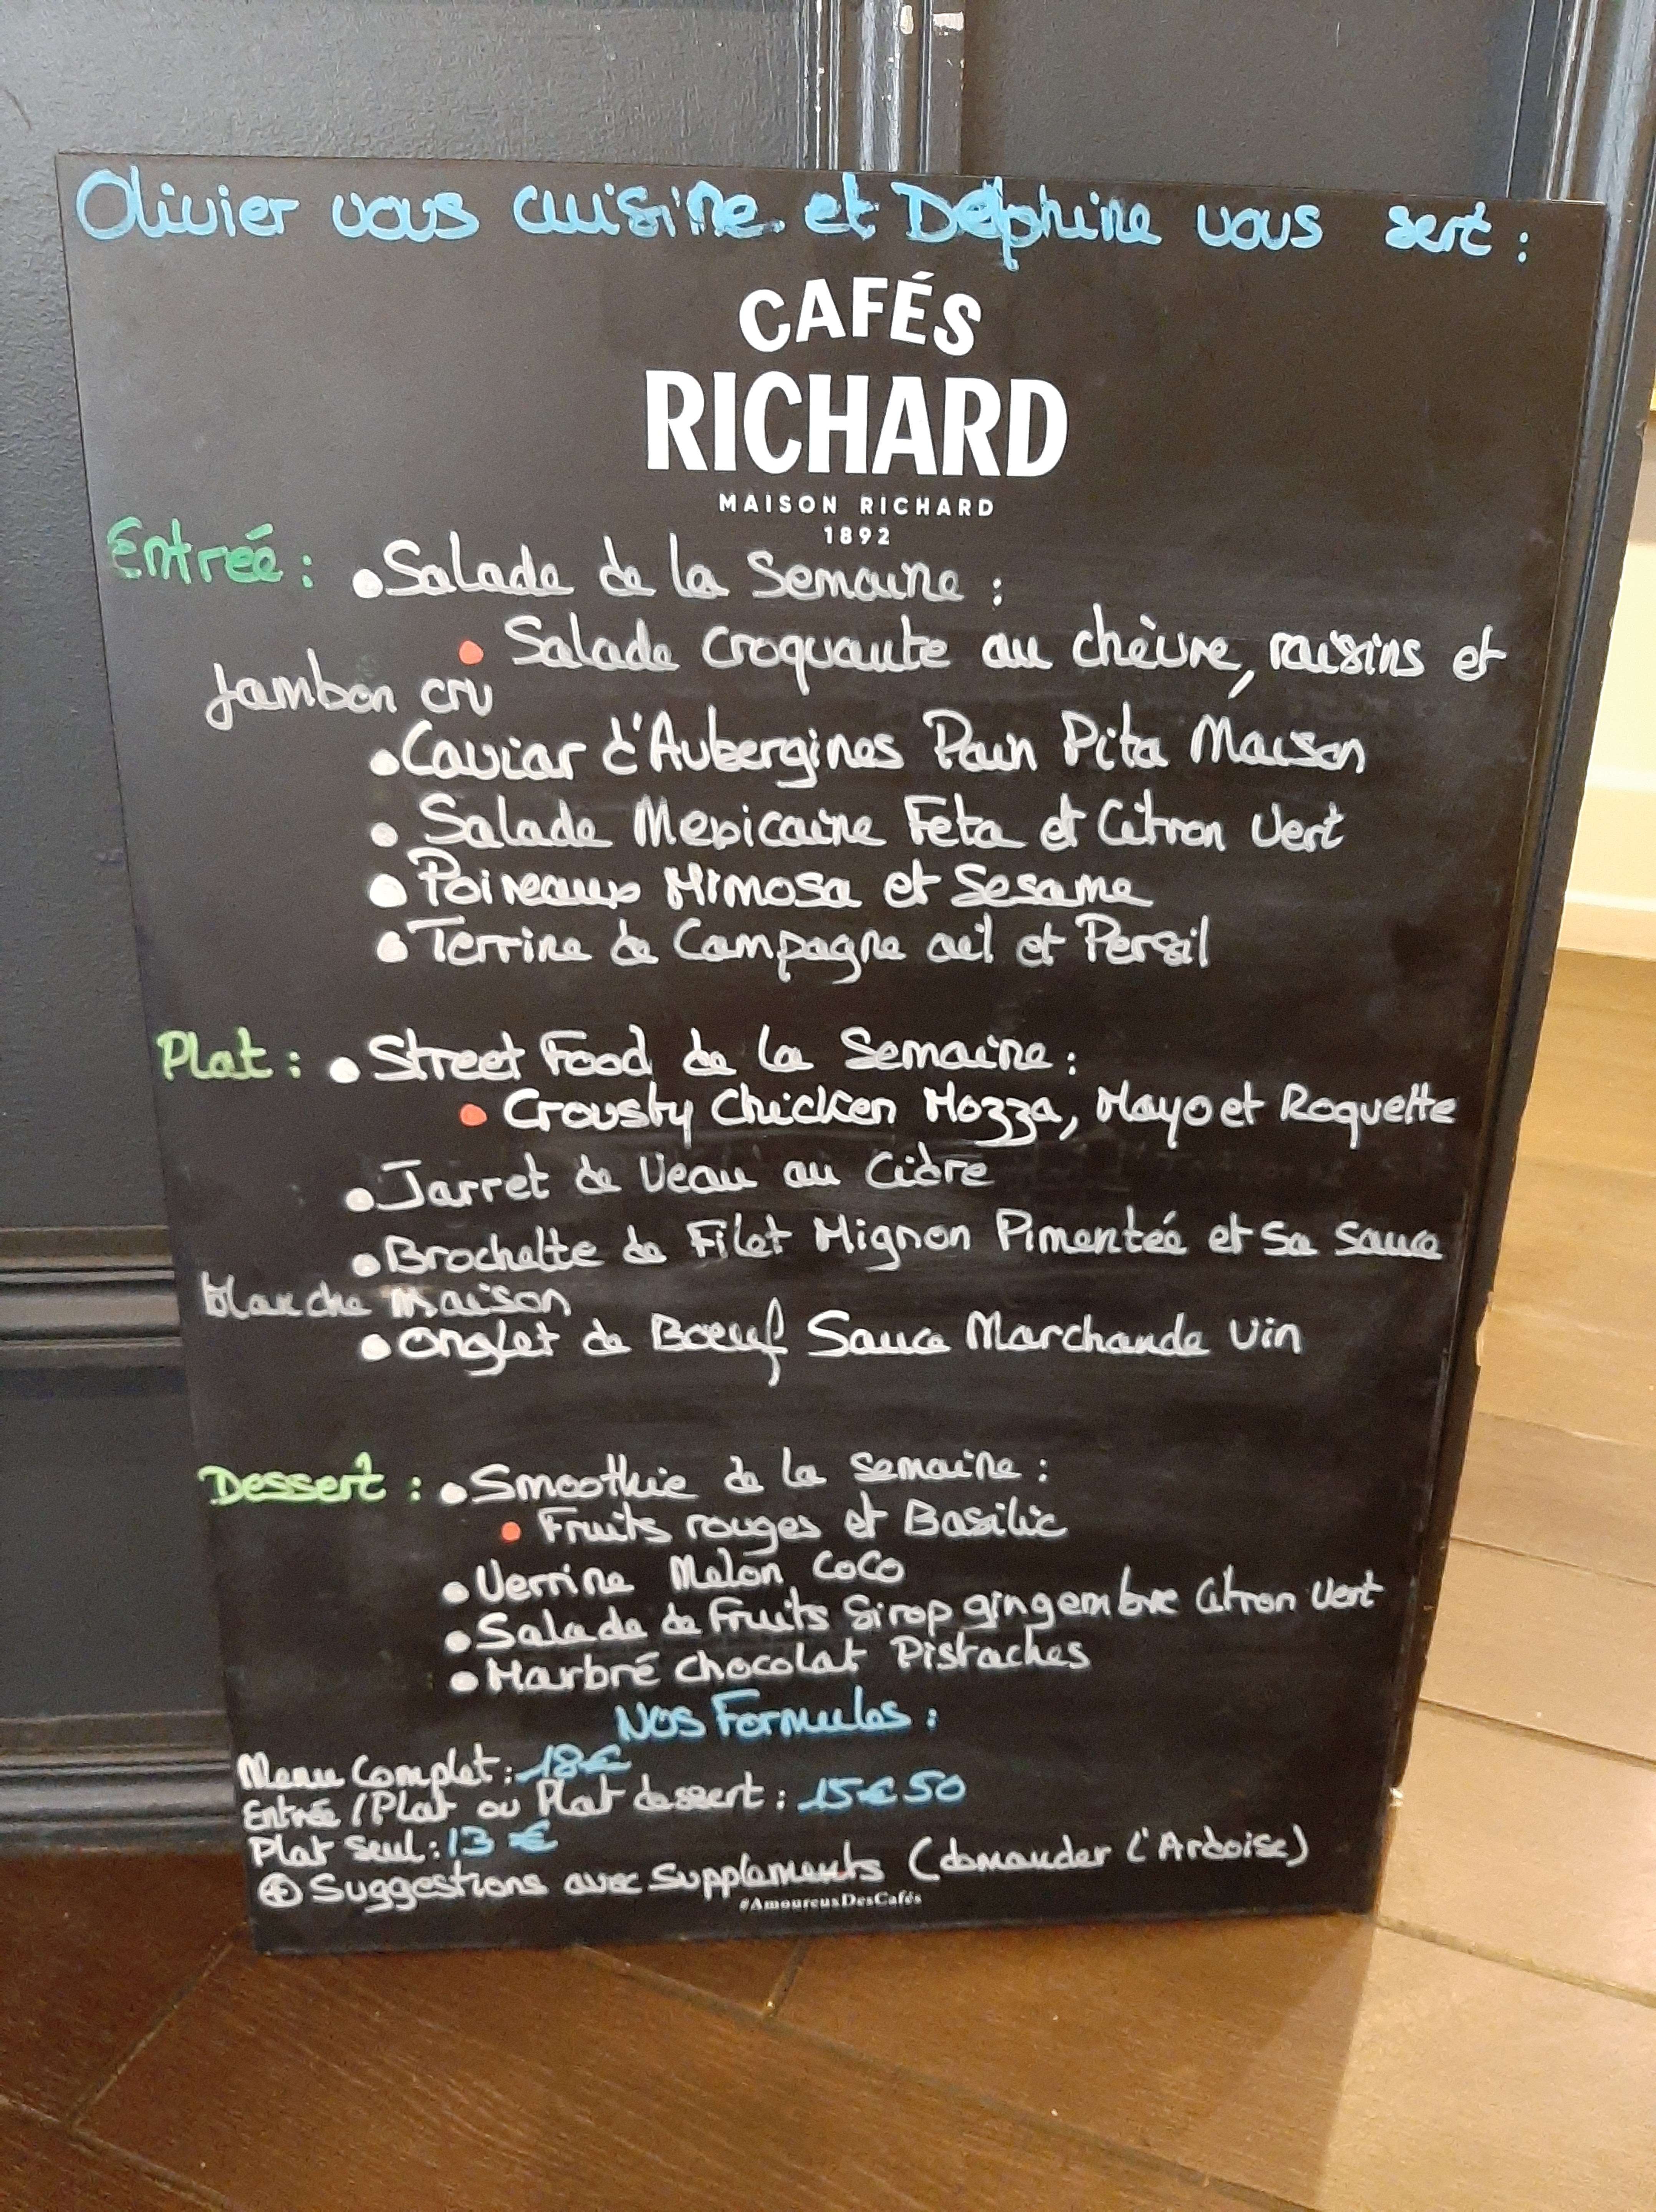 Olivier vous cuisine et Delphine vous sert :
CAFÉS
RICHARD
MAISON RICHARD
1892
Entrée : • Salade de la Semaine :
• Salade croquante au chèvre, raisins et
Jambon cru
• Caviar d'Aubergines Pain Pita Maison
• Salade Mexicaine Feta et Citron Vert
• Poireaux Mimosa et Sesame
• Terrine de Campagne ail et Persil
Plat : • Street Food de la Semaine :
• Crousty Chicken Mozza, Mayo et Roquette
• Jarret de Veau au Cidre
• Brochette de Filet Mignon Pimentée et Sa Sauce
blanche Maison
• Onglet de Boeuf Sauce Marchande Vin
Dessert : • Smoothie de la Semaine :
• Fruits rouges et Basilic
• Verrine Melon CoCo
• Salade de Fruits Sirop gingembre Citron Vert
• Marbré chocolat Pistaches
Nos Formules :
Menu Complet : 18€
Entrée / Plat ou Plat dessert : 15€50
Plat Seul : 13 €
⊕ Suggestions avec Supplements (demander l'Ardoise)
#AmoureusDesCafés